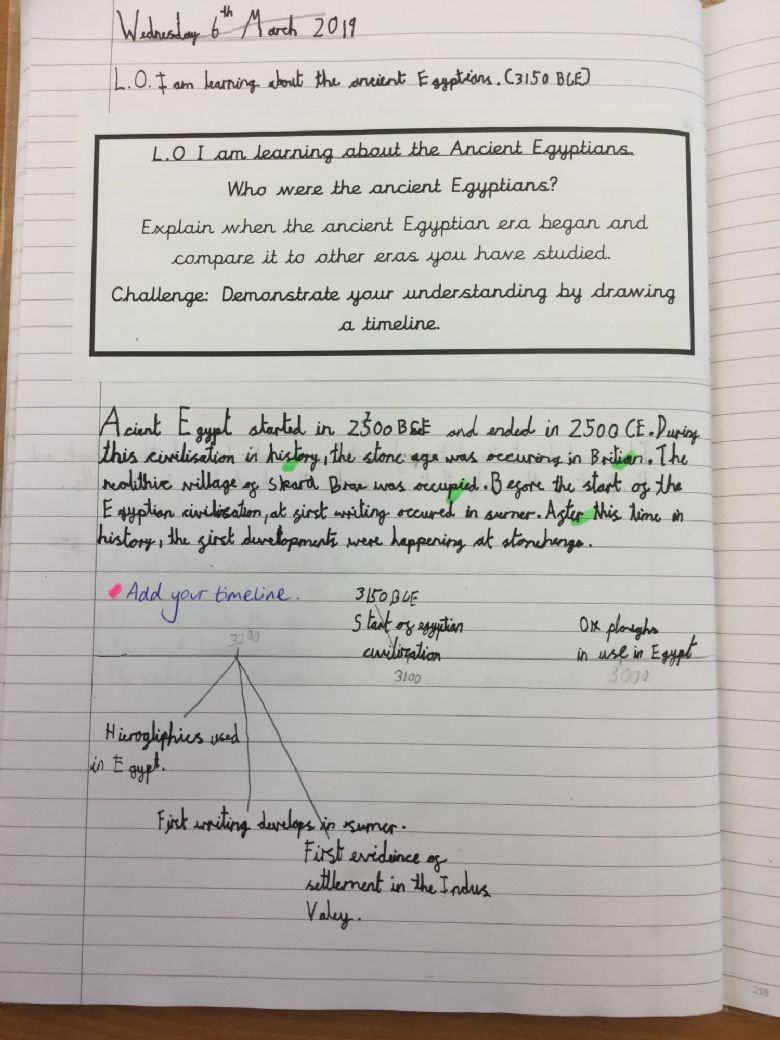 Wednesday 6th March 2019
L.O. I am learning about the ancient Egyptians. (3150 BCE)
L.O I am learning about the Ancient Egyptians.
Who were the ancient Egyptians?
Explain when the ancient Egyptian era began and
compare it to other eras you have studied.
Challenge: Demonstrate your understanding by drawing
a timeline.
Acient Egypt started in and ended in 2500 CE. During
this civilisation in history, the stone age was occuring in Britian. The
neolithic village of Skard Brae was occupied. Before the start of the
Egyptian civilisation, at first writing occured in sumer. After this time in
history, the first developments were happening at stonehenge.
Add your timeline.
3150 BCE
Start of egyptian
civilization
3100
Ox ploughs
in use in Egypt
3000
3200
Hierogliphics used
in Egypt.
First writing develops in sumer.
First evidence of
settlement in the Indus
Valey.
218